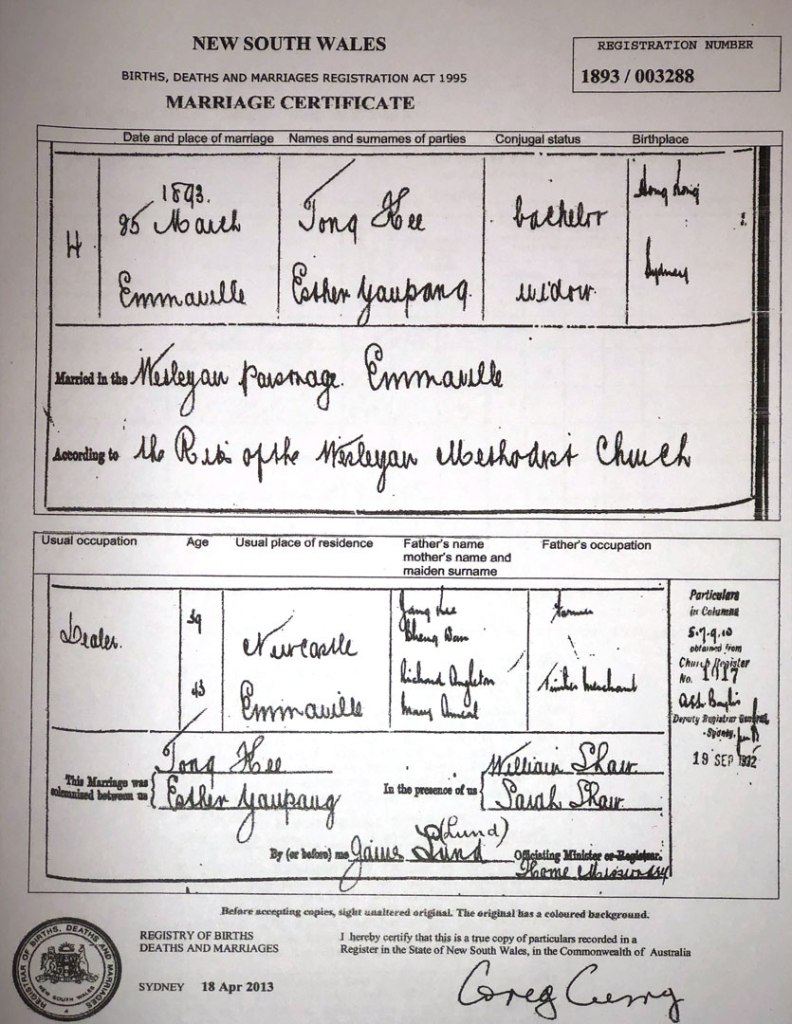 NEW SOUTH WALES
BIRTHS, DEATHS AND MARRIAGES REGISTRATION ACT 1995
MARRIAGE CERTIFICATE
REGISTRATION NUMBER
1893 / 003288
Date and place of marriage Names and surnames of parties Conjugal status Birthplace
1893.
25 March Tong Hee bachelor Hong Kong
H
Emmaville Esther Yaupang. widow Sydney
Married in the Wesleyan parsonage. Emmaville
According to the Rites of the Wesleyan Methodist Church
Usual occupation Age Usual place of residence Father's name mother's name and maiden surname Father's occupation
Dealer. 39 Newcastle
Farmer
43 Emmaville Richard Timber Merchant
Mary
Particulars
in Columns
5.7.9.10
obtained from
Church Register
No. 1417
Deputy Registrar General,
Sydney,
19 SEP 1932
This Marriage was solemnized between us { Tong Hee
Esther Yaupang
In the presence of us { William Shaw
Sarah Shaw
(Lund)
By (or before) me Lund Officiating Minister or Registrar.
Home Missionary
Before accepting copies, sight unaltered original. The original has a coloured background.
REGISTRAR OF BIRTHS, DEATHS AND MARRIAGES
NEW SOUTH WALES
REGISTRY OF BIRTHS
DEATHS AND MARRIAGES
SYDNEY 18 Apr 2013
I hereby certify that this is a true copy of particulars recorded in a
Register in the State of New South Wales, in the Commonwealth of Australia
Greg Curry